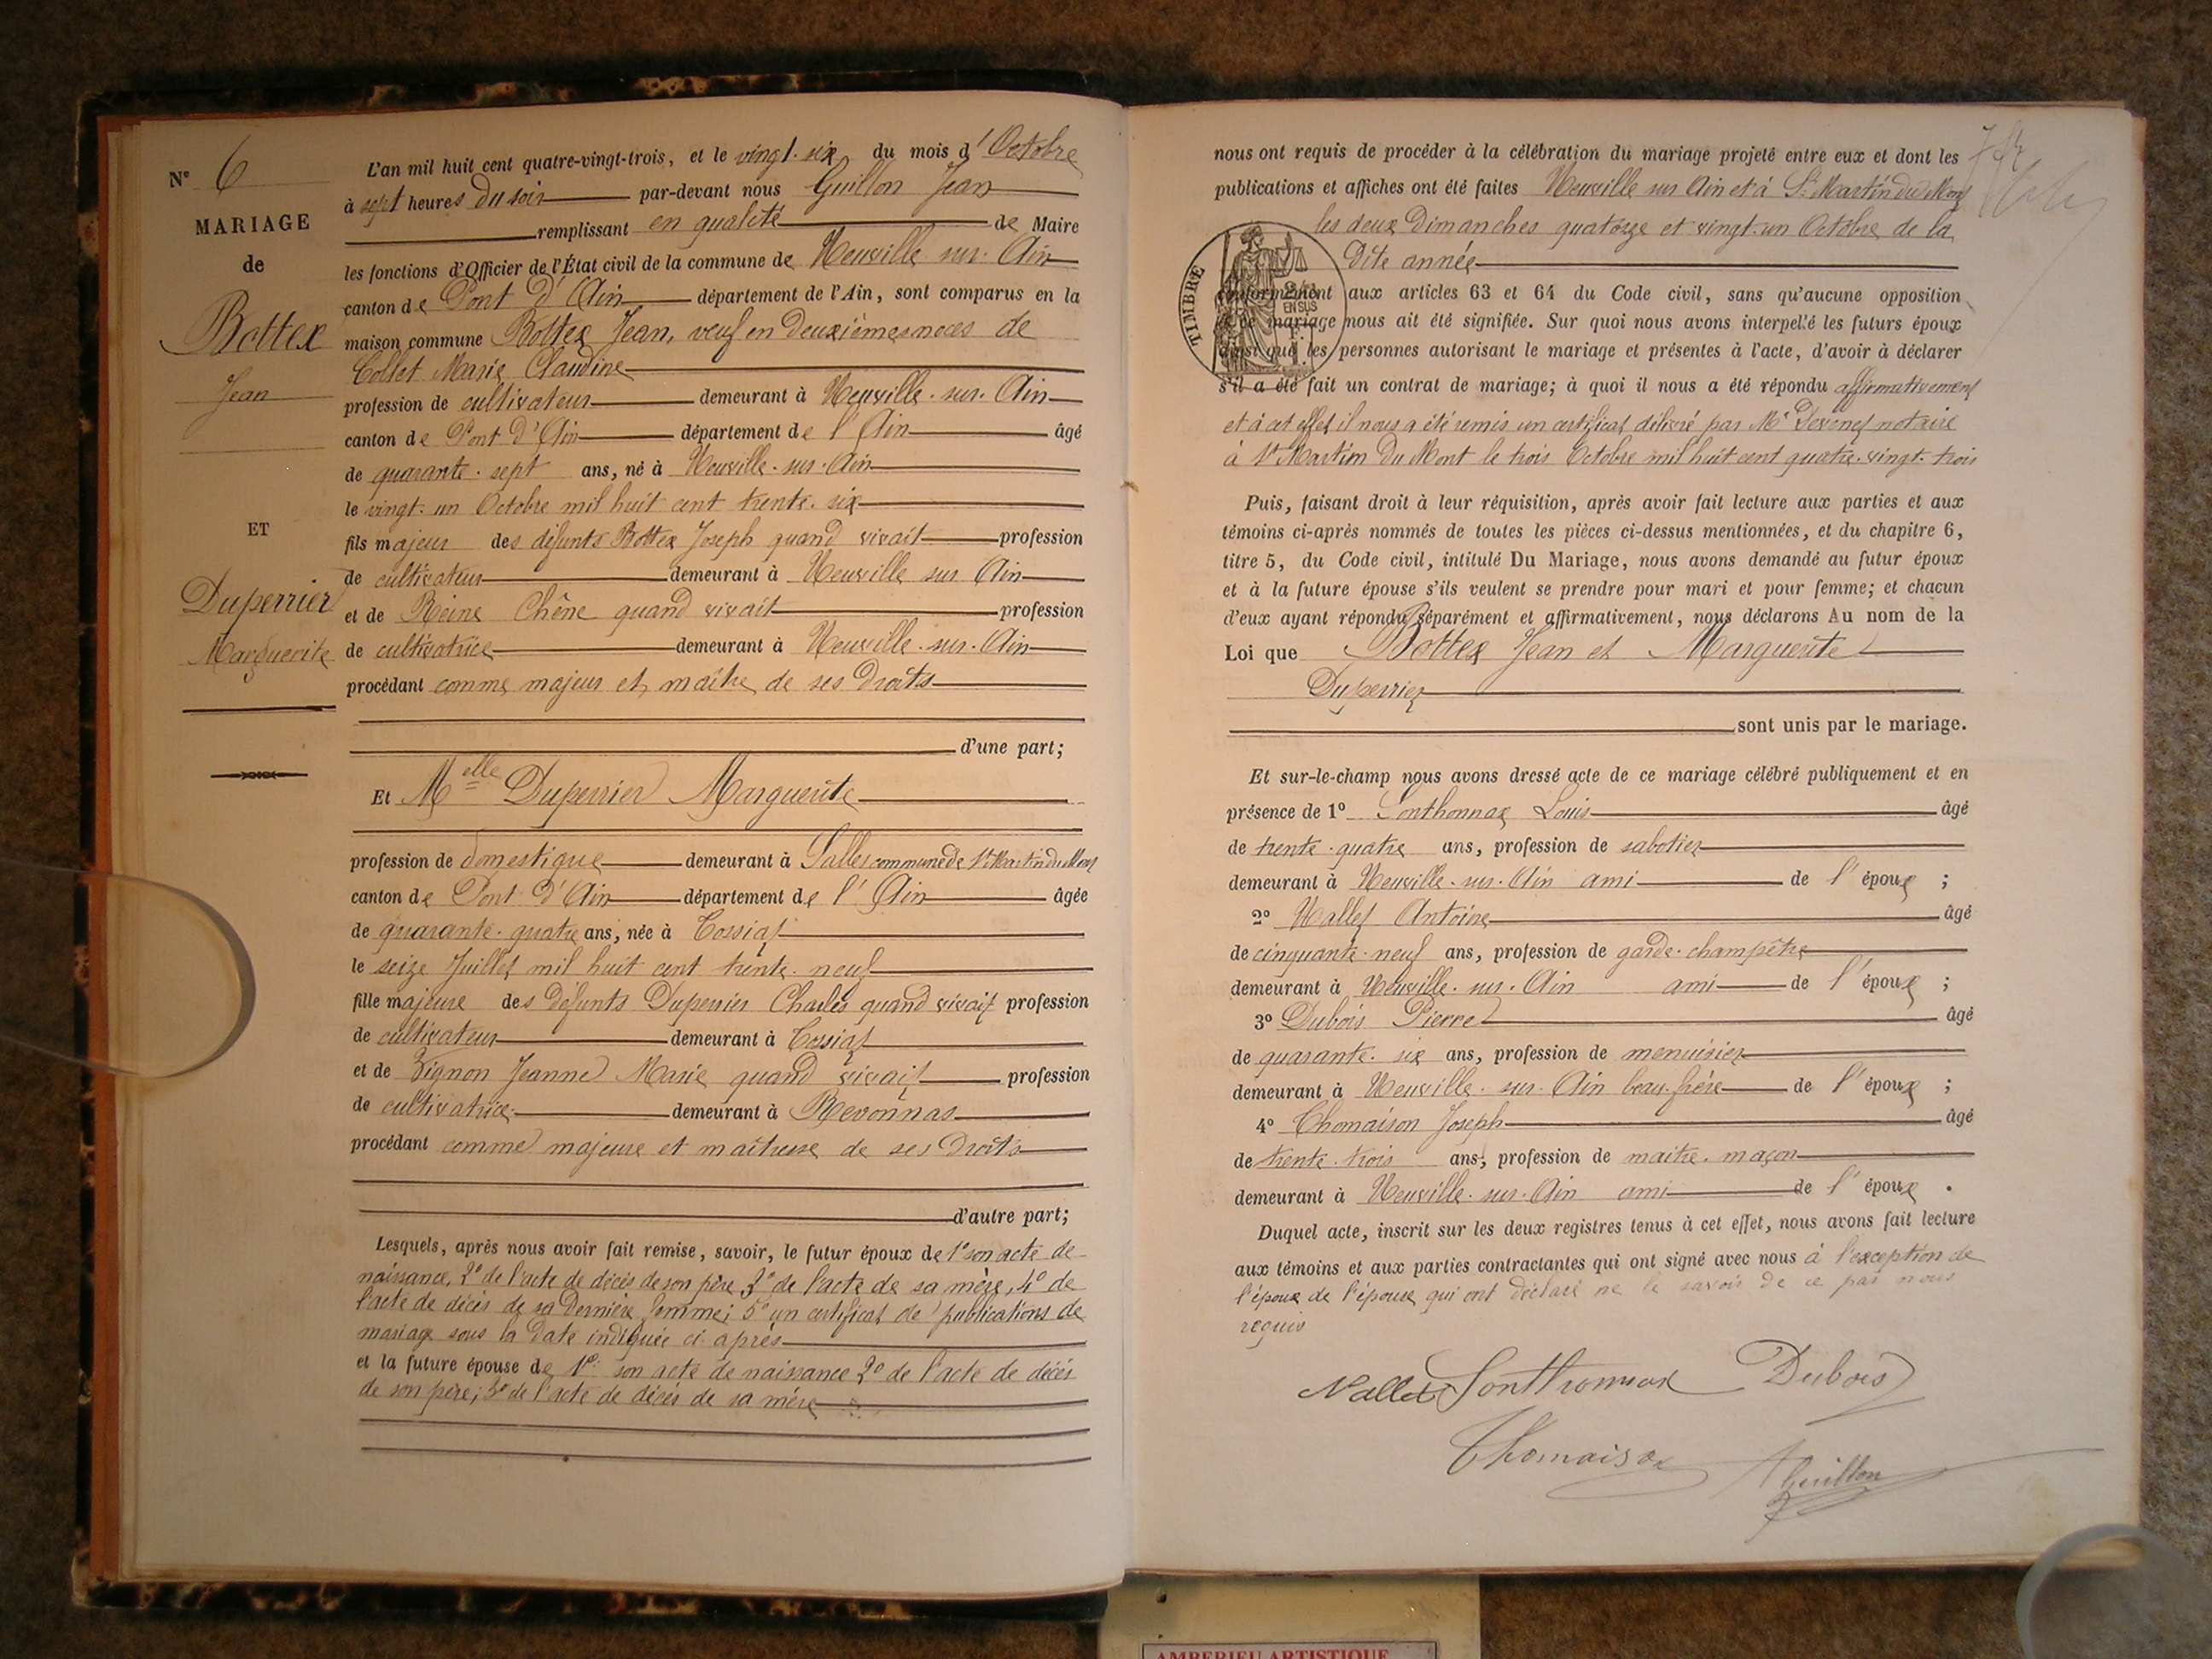 N° 6
MARIAGE
de
Bottex
Jean
ET
Duperrier
Marguerite
L'an mil huit cent quatre-vingt-trois, et le vingt-six du mois d'Octobre
à sept heures du soir par-devant nous Guillon Jean
remplissant en qualité de Maire
les fonctions d'Officier de l'État civil de la commune de Neuville sur Ain
canton de Pont d'Ain département de l'Ain, sont comparus en la
maison commune Bottex Jean, veuf en deuxièmes noces de
Collet Marie Claudine
profession de cultivateur demeurant à Neuville-sur-Ain
canton de Pont d'Ain département de l'Ain âgé
de quarante-sept ans, né à Neuville-sur-Ain
le vingt-un Octobre mil huit cent trente-six
fils majeur des défunts Bottex Joseph quand vivait profession
de cultivateur demeurant à Neuville sur Ain
et de Reine Chêne quand vivait profession
de cultivatrice demeurant à Neuville-sur-Ain
procédant comme majeur et maître de ses droits
d'une part;
Et Melle Duperrier Marguerite
profession de domestique demeurant à Salles commune de St Martin du Mont
canton de Pont d'Ain département de l'Ain âgée
de quarante-quatre ans, née à Tossiat
le seize Juillet mil huit cent trente-neuf
fille majeure des défunts Duperrier Charles quand vivait profession
de cultivateur demeurant à Tossiat
et de Jeanne Marie quand vivait profession
de cultivatrice demeurant à Revonnas
procédant comme majeure et maîtresse de ses droits
d'autre part;
Lesquels, après nous avoir fait remise, savoir, le futur époux de 1° son acte de
naissance, 2° de l'acte de décès de son père, 3° de l'acte de sa mère, 4° de
l'acte de décès de sa dernière femme; 5° un certificat de publications de
mariage sous la date indiquée ci-après
et la future épouse de 1° son acte de naissance 2° de l'acte de décès
de son père; 3° de l'acte de décès de sa mère
nous ont requis de procéder à la célébration du mariage projeté entre eux et dont les
publications et affiches ont été faites Neuville sur Ain et à St Martin du Mont
les deux Dimanches quatorze et vingt-un Octobre de la
dite année
TIMBRE
conformément aux articles 63 et 64 du Code civil, sans qu'aucune opposition
à ce mariage nous ait été signifiée. Sur quoi nous avons interpellé les futurs époux
ainsi que les personnes autorisant le mariage et présentes à l'acte, d'avoir à déclarer
s'il a été fait un contrat de mariage; à quoi il nous a été répondu affirmativement
et à cet effet il nous a été remis un certificat délivré par Me notaire
à St Martin du Mont le trois Octobre mil huit cent quatre-vingt-trois
Puis, faisant droit à leur réquisition, après avoir fait lecture aux parties et aux
témoins ci-après nommés de toutes les pièces ci-dessus mentionnées, et du chapitre 6,
titre 5, du Code civil, intitulé Du Mariage, nous avons demandé au futur époux
et à la future épouse s'ils veulent se prendre pour mari et pour femme; et chacun
d'eux ayant répondu séparément et affirmativement, nous déclarons Au nom de la
Loi que Bottex Jean et Marguerite
Duperrier
sont unis par le mariage.
Et sur-le-champ nous avons dressé acte de ce mariage célébré publiquement et en
présence de 1° Sonthonnax Louis âgé
de trente-quatre ans, profession de sabotier
demeurant à Neuville-sur-Ain ami de l'époux ;
2° Nallet Antoine âgé
de cinquante-neuf ans, profession de garde-champêtre
demeurant à Neuville-sur-Ain ami de l'époux ;
3° Dubois Pierre âgé
de quarante-six ans, profession de menuisier
demeurant à Neuville-sur-Ain beau-frère de l'époux ;
4° Thomaison Joseph âgé
de trente-trois ans, profession de maître-maçon
demeurant à Neuville-sur-Ain ami de l'époux .
Duquel acte, inscrit sur les deux registres tenus à cet effet, nous avons fait lecture
aux témoins et aux parties contractantes qui ont signé avec nous à l'exception de
l'époux de l'épouse qui ont déclaré ne le savoir de ce par nous
requis
Nallet Sonthonnax Dubois
Thomaison Guillon
AMBERIEU ARTISTIQUE